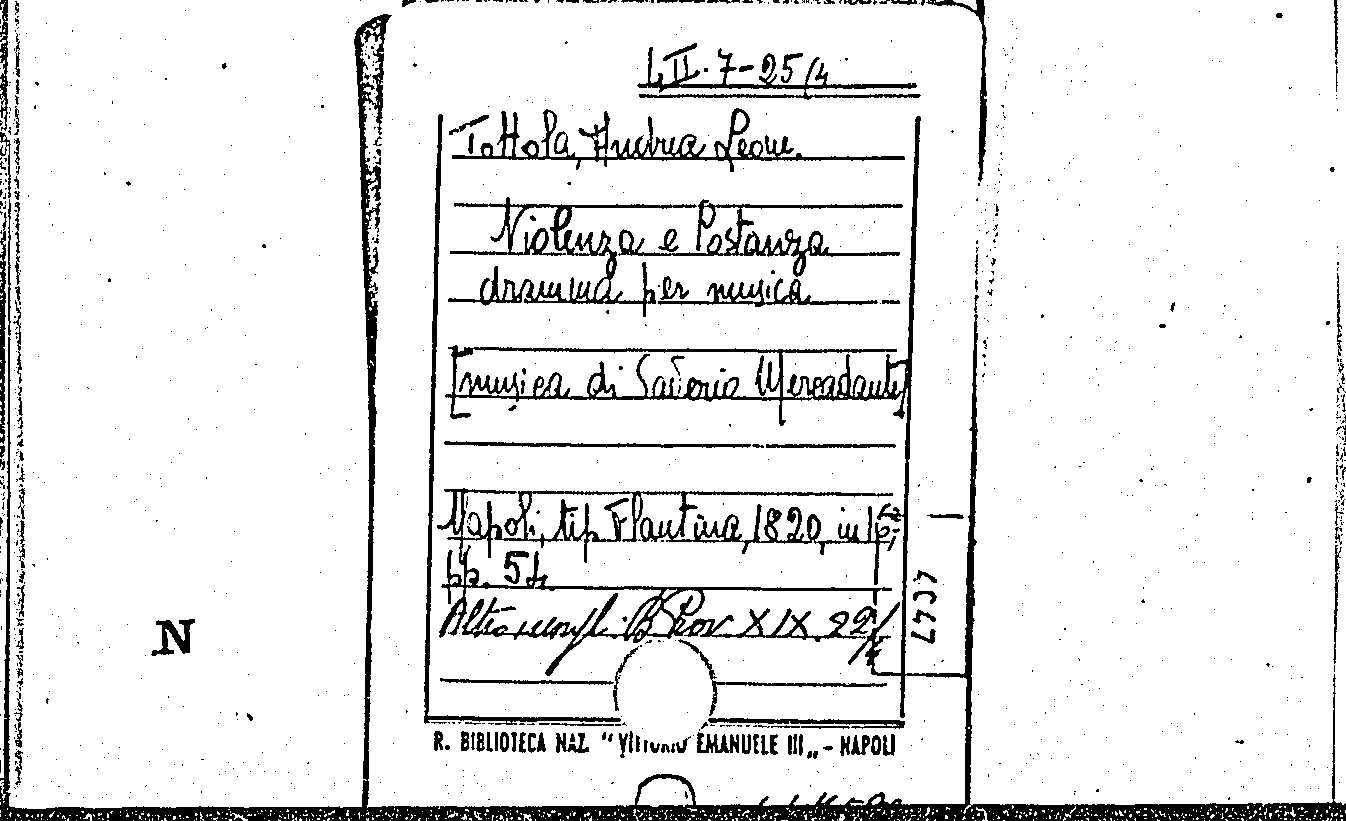 L,II. 7-25/4
Tottola, Andrea Leone.
Violenza e Costanza
dramma per musica
[musica di Saverio Mercadante]
Napoli, tip. Flautina, 1820, in 16°,
pp. 54.
Altro B. Prov XIX. 22/
N
R. BIBLIOTECA NAZ. "VITTORIO EMANUELE III„ - NAPOLI